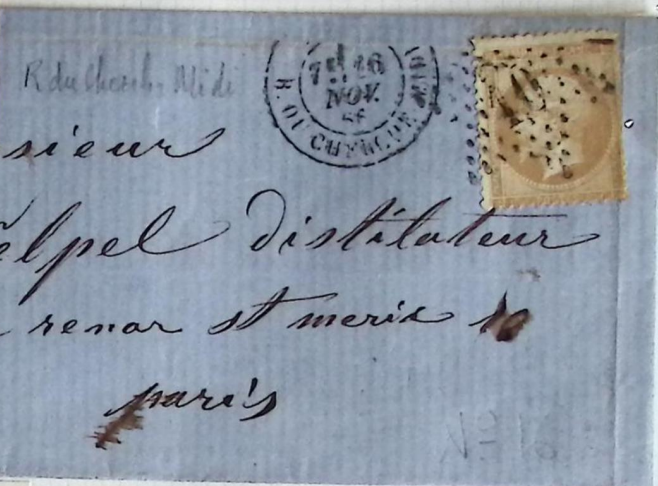 R. du Cherche-Midi
R. DU CHERCHE MIDI
16
NOV.
sieur
elpel distilateur
renar st meric 10
paris